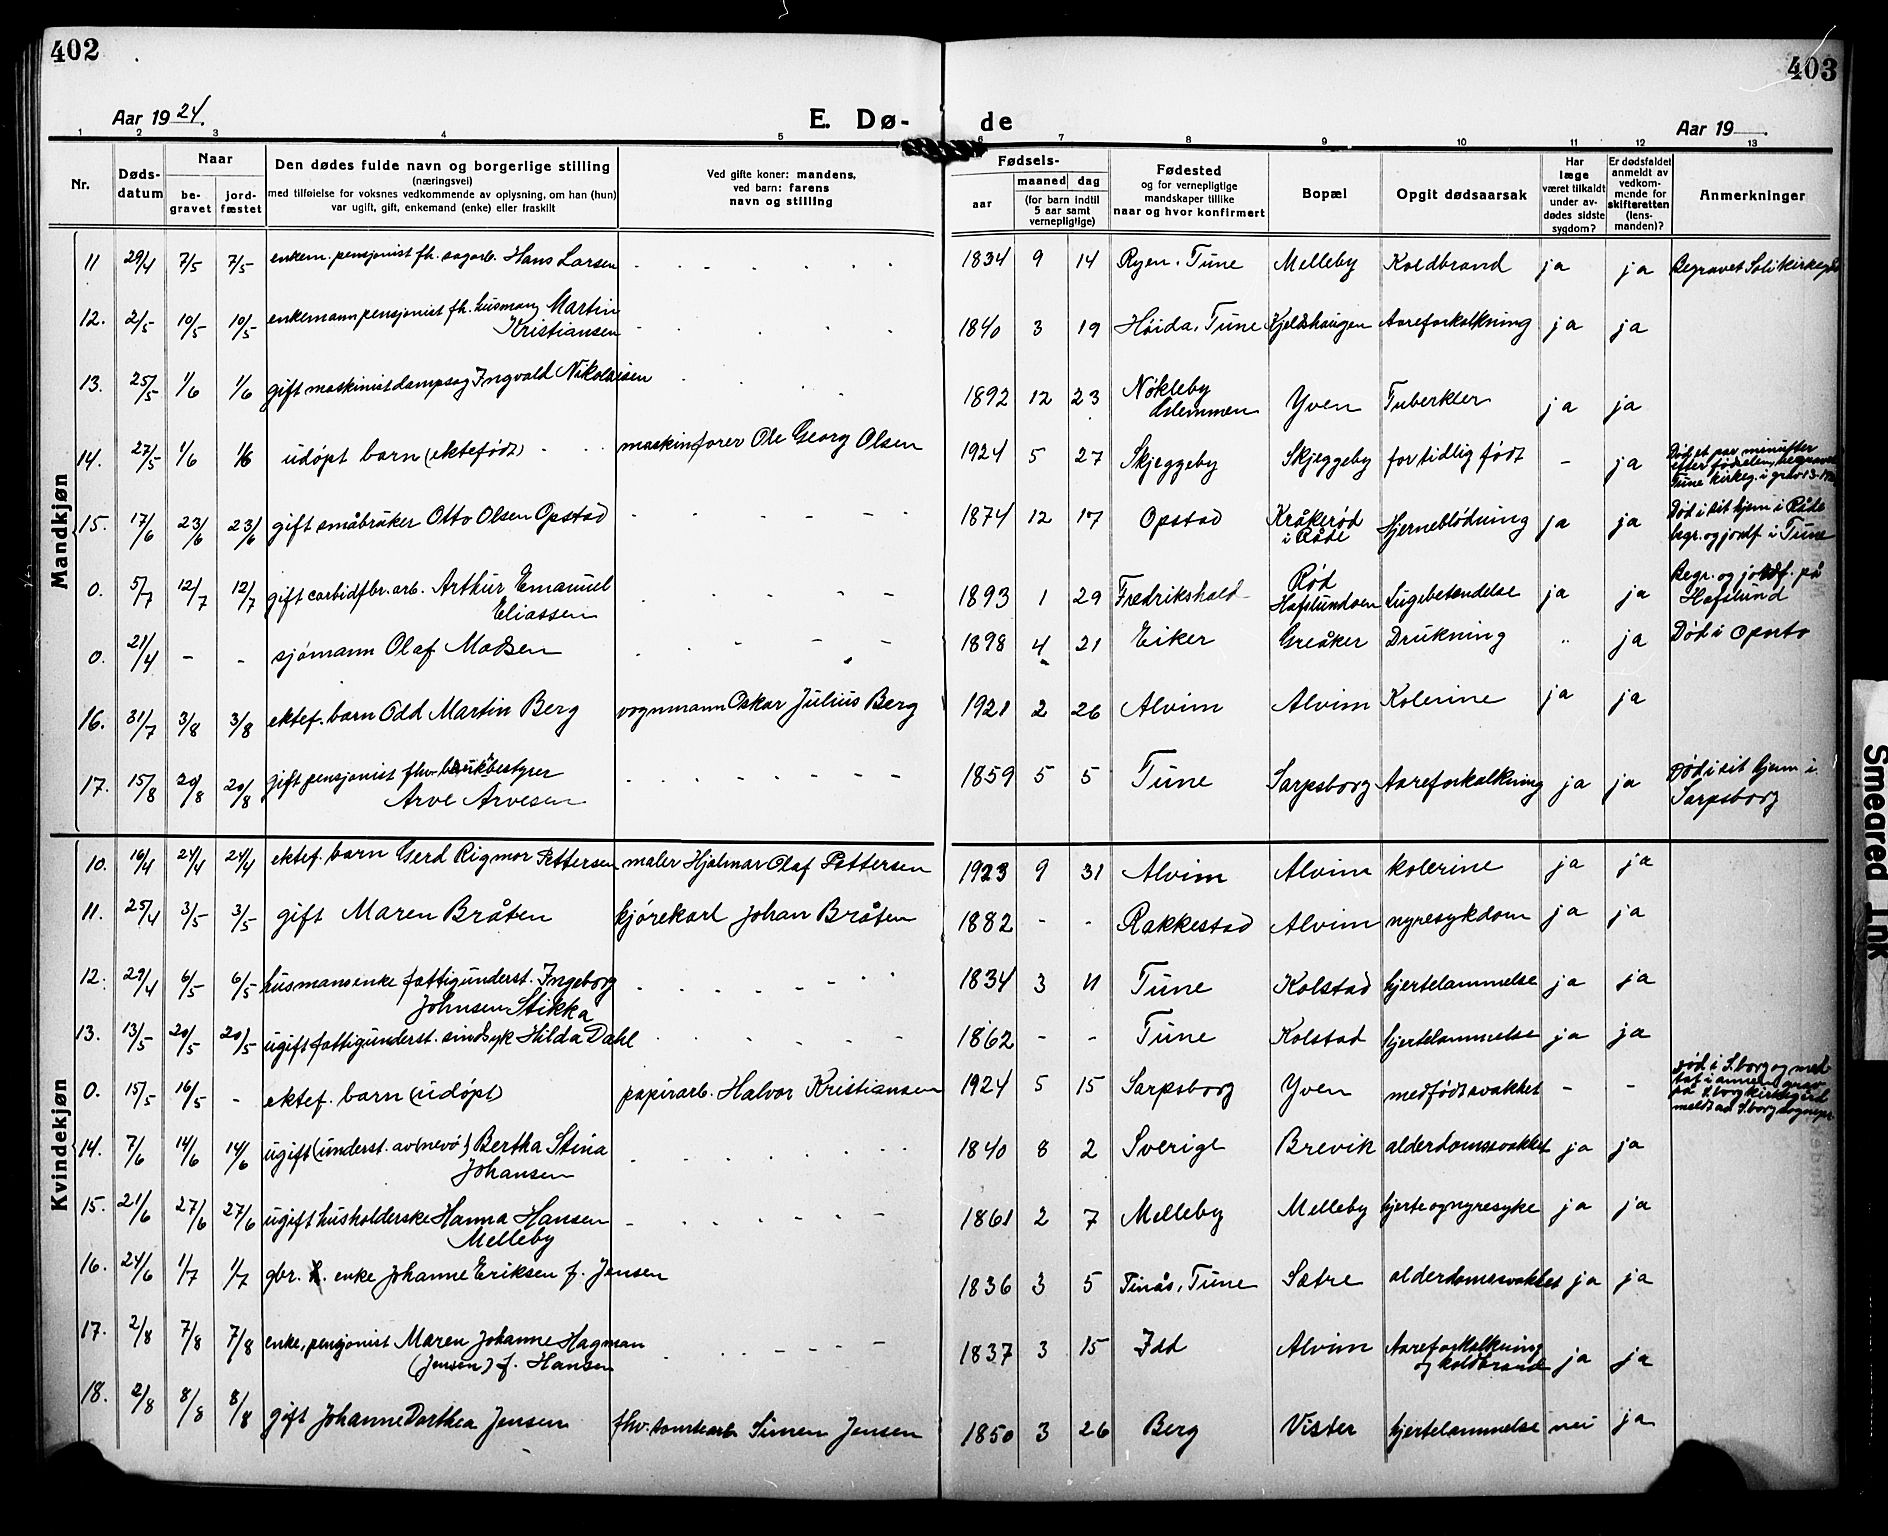 402
403
Aar 1924.
E. Dø- de
Aar 19
1 2 3 4 5 6 7 8 9 10 11 12 13
Nr.
Døds-
datum
Naar
be-
gravet
jord-
fæstet
Den dødes fulde navn og borgerlige stilling
(næringsvei)
med tilføielse for voksnes vedkommende av oplysning, om han (hun)
var ugift, gift, enkemand (enke) eller fraskilt
Ved gifte koner: mandens,
ved barn: farens
navn og stilling
Fødsels-
aar
maaned dag
(for barn indtil
5 aar samt
vernepligtige)
Fødested
og for vernepligtige
mandskaper tillike
naar og hvor konfirmert
Bopæl
Opgit dødsaarsak
Har
læge
været tilkaldt
under av-
dødes sidste
sygdom?
Er dødsfaldet
anmeldt av
vedkom-
mende for
skifteretten
(lens-
manden)?
Anmerkninger
Mandkjøn
11 29/4 7/5 7/5 enkem. pensjonist fh. sagarb. Hans Larsen 1834 9 14 Ryen, Tune Melleby Koldbrand ja ja Begravet Soli kirkegd
12. 2/5 10/5 10/5 enkemann pensjonist fh. husmann Martin
Kristiansen 1840 3 19 Høida, Tune Kjeldshaugen Aareforkalkning ja ja
13. 25/5 1/6 1/6 gift maskinist dampsag Ingvald Nikolaisen 1892 12 23 Nøkleby
Glemmen Yven Tuberkler ja ja
14. 27/5 1/6 1/6 udøpt barn (ektefødt) maskinfører Ole Georg Olsen 1924 5 27 Skjeggeby Skjeggeby for tidlig født - ja Død et par minutter
efter fødselen, begravet
Tune kirkeg. i grav
15. 17/6 23/6 23/6 gift småbruker Otto Olsen Opstad 1874 12 17 Opstad Kråkerød
i Råde Hjerneblødning ja ja Død i sit hjem i Råde
begr. og jordf. i Tune
0. 5/7 12/7 12/7 gift carbidfbr. arb. Arthur Emanuel
Eliassen 1893 1 29 Fredrikshald Rød
Hafslundsøen Lugebetendelse ja ja Begr. og jordf. på
Hafslund
0. 21/4 - - sjømann Olaf Madsen 1898 4 21 Eiker Greåker Drukning " ja Død i Oporto
16. 31/7 3/8 3/8 ektef. barn Odd Martin Berg vognmann Oskar Julius Berg 1921 2 26 Alvim Alvim Kolerine ja ja
17. 15/8 20/8 20/8 gift pensjonist fhv. brukbestyrer
Arve Arvesen 1859 5 5 Tune Sarpsborg Aareforkalkning ja ja Død i sit hjem i
Sarpsborg
Kvindekjøn
10. 16/4 24/4 24/4 ektef. barn Gerd Rigmor Pettersen maler Hjalmar Olaf Pettersen 1923 9 31 Alvim Alvim kolerine ja ja
11. 25/4 3/5 3/5 gift Maren Bråten kjørekarl Johan Bråten 1882 - - Rakkestad Alvim nyresykdom ja ja
12. 29/4 6/5 6/5 husmansenke fattigunderst. Ingeborg
Johnsen Stikka 1834 3 11 Tune Kolstad hjertelammelse ja ja
13. 13/5 20/5 20/5 ugift fattigunderst. sindsyk Hilda Dahl 1862 - - Tune Kolstad hjertelammelse ja ja
0. 15/5 16/5 - ektef. barn (udøpt) papirarb. Halvor Kristiansen 1924 5 15 Sarpsborg Yven medfødt svakhet - - Død i S.borg og ned
sat i annen grav
på S.borg kirkeg.
meldt av S.borg sognepr.
14. 7/6 14/6 14/6 ugift (underst. av nevø) Bertha Stina
Johansen 1840 8 2 Sverige Brevik alderdomssvakhet ja ja
15. 21/6 27/6 27/6 ugift husholderske Hanna Hansen
Melleby 1861 2 7 Melleby Melleby hjerte og nyresyke ja ja
16. 24/6 1/7 1/7 gbr. enke Johanne Eriksen f. Jensen 1836 3 5 Tinås, Tune Sætre alderdomssvakhet ja ja
17. 2/8 7/8 7/8 enke, pensjonist Maren Johanne Hagman
(Jensen) f. Hansen 1837 3 15 Idd Alvim Aareforkalkning
og koldbrand ja ja
18. 2/8 8/8 8/8 gift Johanne Dorthea Jensen fhv. tomtearb. Simen Jensen 1850 3 26 Berg Vister hjertelammelse nei ja
Smeared Ink